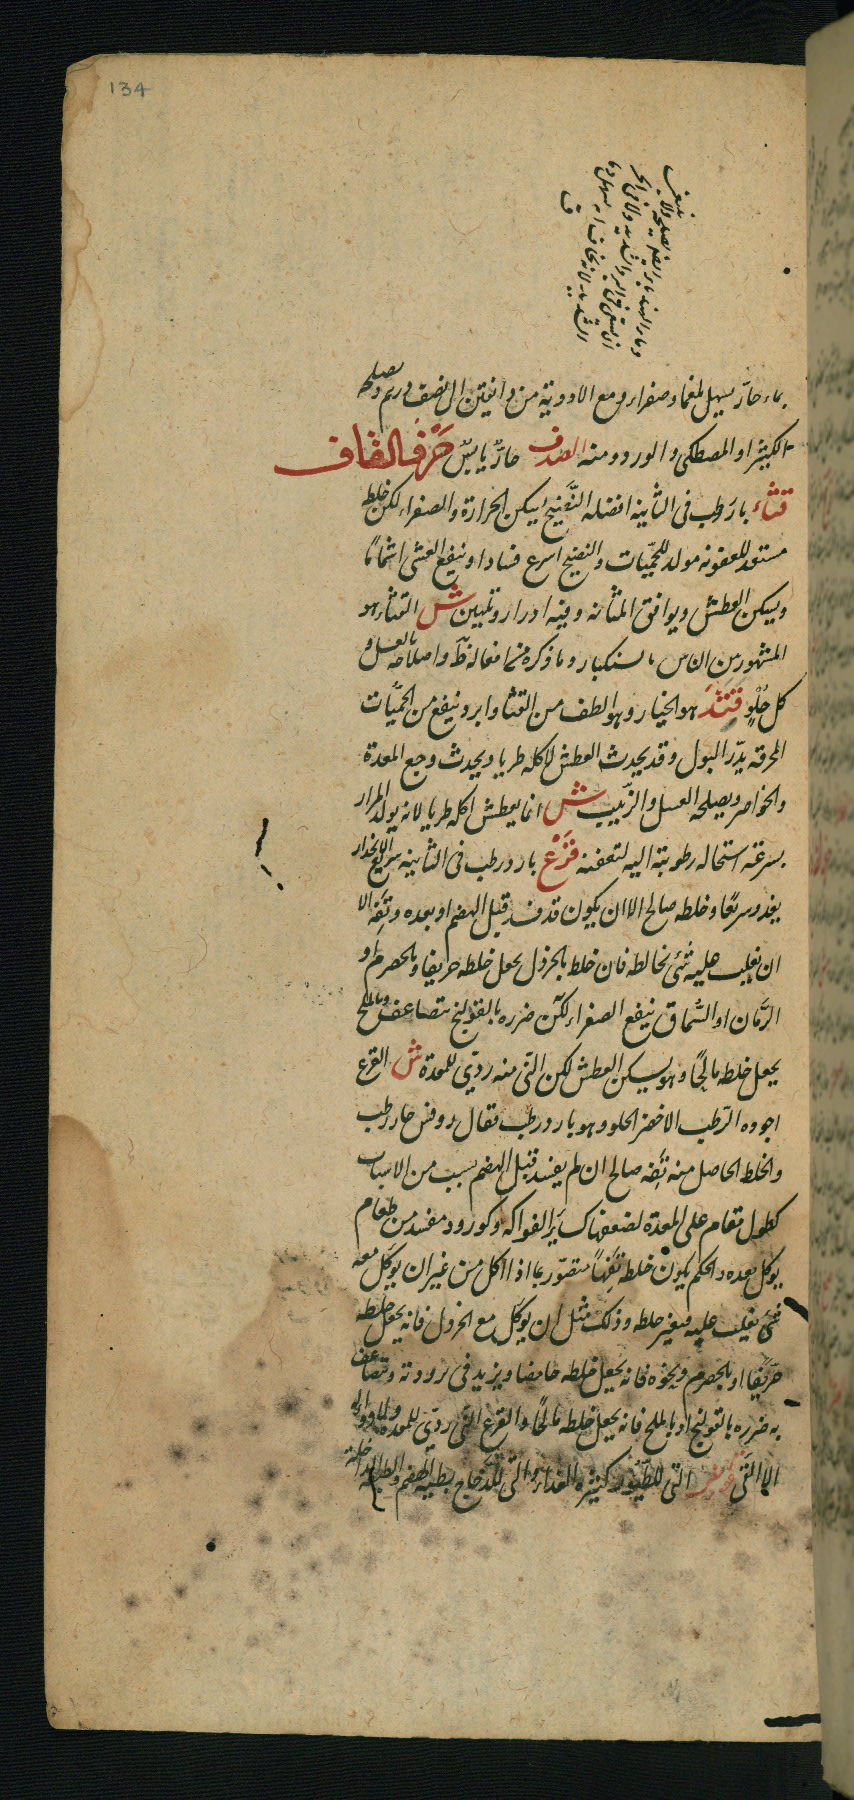 134
بماء حار يسهل بلغما وصفراء ومع الادوية من دانقين الى نصف درهم ويصلحه
الكثيرا والمصطكى والورد ومنه الصدف حارّ يابس حَرفُ القاف
قثاء بارد رطب فى الثانية افضله النضيج يسكن الحرارة والصفراء لكن خلطه
مستعد للعفونه مولد للحمّيات والنضيج اسرع فسادا وينفع الغشى اشمامًا
ويسكن العطش ويوافق المثانه وفيه ادرار وتليين ش القثاء هو
المشهور بين الناس وما ذكره من منافعه ظ واصلاحه بالعسل و
كل حُلْوٍ قَثَد هو الخيار وهو الطف من القثا وابرد وينفع من الحمّيات
المحرقه يدّر البول وقد يحدث العطش لاكله طريا ويحدث وجع المعدة
والخواصر ويصلحه العسل والزّبيب ش انما يعطش اكله طريا لانه يولد المرار
بسرعة استحاله رطوبته اليه لتعفنه قَرْع بارد رطب فى الثانيه سريع الانحدار
يغذو سريعًا وخلطه صالح الا ان يكون قد فسد قبل الهضم او بعده وتفه الا
ان يغلب عليه شىء يخالطه فان خلط بالخردل يجعل خلطه حريفا وبالحصرم او
الرّمان او السّماق ينفع الصفراء لكن ضرره بالقولنج يتضاعف وبالملح
يجعل خلطه مالحًا وهو يسكن العطش لكن النّى منه ردّى للمعدة ش القرع
اجوده الرّطب الاخضر الحلو وهو بارد رطب فقال روفس حار رطب
والخلط الحاصل منه تَفِه صالح ان لم يفسد قبل الهضم بسبب من الاسباب
كطول مقام على المعدة لضعفها كسائر الفواكه وكورود مفسد من طعام
يوكل بعده والحكم بكون خلطه تَفِهًا متصوّر بما اذا اكل من غير ان يوكل معه
شىء يغلب عليه فيغير خلطه وذلك مثل ان يوكل مع الخردل فانه يجعل خلطه
حرّيفًا او بالحصرم ونحوه فانه يجعل خلطه حامضا ويزيد فى برودته ويتضاعف
به ضرره بالقولنج او بالملح فانه يجعل خلطه مالحًا والقرع النّى ردّى للمعدة
التى للطّيور كثيره الغذاء والتى للدّجاج بطيئه الهضم